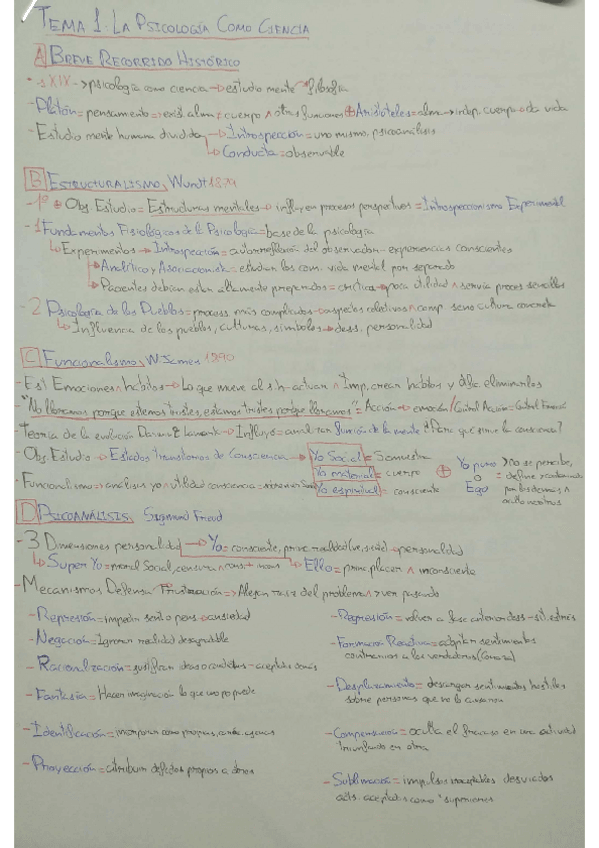 TEMA 1. LA PSICOLOGÍA COMO CIENCIA
A BREVE RECORRIDO HISTÓRICO
- s XIX -> psicología como ciencia -> estudio mente filosofía
- Platón = pensamiento => exist. alma + cuerpo ∧ otras funciones ⊕ Aristóteles = alma -> indep. cuerpo da vida
- Estudio mente humana dividida -> Introspección = uno mismo, psicoanálisis
↳ Conducta = observable
B ESTRUCTURALISMO, Wundt 1879
- 1º Obj. Estudio = Estructuras mentales -> influyen procesos perspectivos = Introspeccionismo Experimental
- 1 Fundamentos Fisiológicos de la Psicología = base de la psicología
↳ Experimentos -> Introspección = autorreflexión del observador - experiencias conscientes
Analítico y Asociacionista = estudian los com. vida mental por separado
Pacientes debían estar altamente preparados = crítica -> poca utilidad ∧ servía proces. sencillos
- 2 Psicología de los Pueblos = procesos más complicados -> aspectos relativos ∧ comp. seno cultura concreta
↳ Influencia de los pueblos, culturas, símbolos -> dess. personalidad
C Funcionalismo, W. James 1890
- Est. Emociones ∧ hábitos -> Lo que mueve al s.h - actuar ∧ Imp. crear hábitos y difíc. eliminarlos
- "No lloramos porque estemos tristes, estamos tristes porque lloramos" = Acción -> emoción / Control Acción = Control
- Teoría de la evolución Darwin Lamark -> Influyó = analizar función de la mente ¿Para qué sirve la consciencia?
- Obj. Estudio -> Estados transitorios de Consciencia -> Yo Social =
Yo material = cuerpo ⊕ Yo puro o Ego > No se percibe, define
- Funcionalismo = análisis yo ∧ utilidad consciencia = Yo espiritual = consciente por los demás ∧
D PSICOANÁLISIS, Sigmund Freud
- 3 Dimensiones personalidad -> Yo = consciente, princ. realidad (ve, siente) personalidad
↳ Super Yo = moral Social, censura ∧ Ello = princ. placer ∧ inconsciente
- Mecanismos Defensa => Alejan raíz del problema ∧
- Represión = impedir sent. o pens -> ansiedad
- Regresión = volver a fase anterior dess - sit. estrés
- Negación = Ignorar realidad desagradable
- Formación Reactiva = adoptar sentimientos
contrarios a los verdaderos
- Racionalización = justifican ideas o conductas - aceptados demás
- Desplazamiento = descargan sentimientos hostiles
sobre personas que no lo causaron
- Fantasía = Hacer imaginación lo que uno no puede
- Identificación = incorporan como propias, ajenas
- Compensación = oculta el fracaso en una actividad
triunfando en otra
- Proyección = atribuir defectos propios a otros
- Sublimación = impulsos inaceptables desviados
acts. aceptados como superiores